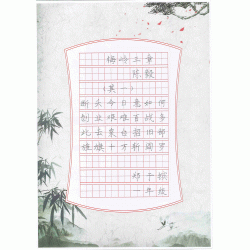 梅岭三章
陈毅
（其一）
断头今日意如何
创业艰难百战多
此去泉台招旧部
旌旗十万斩阎罗